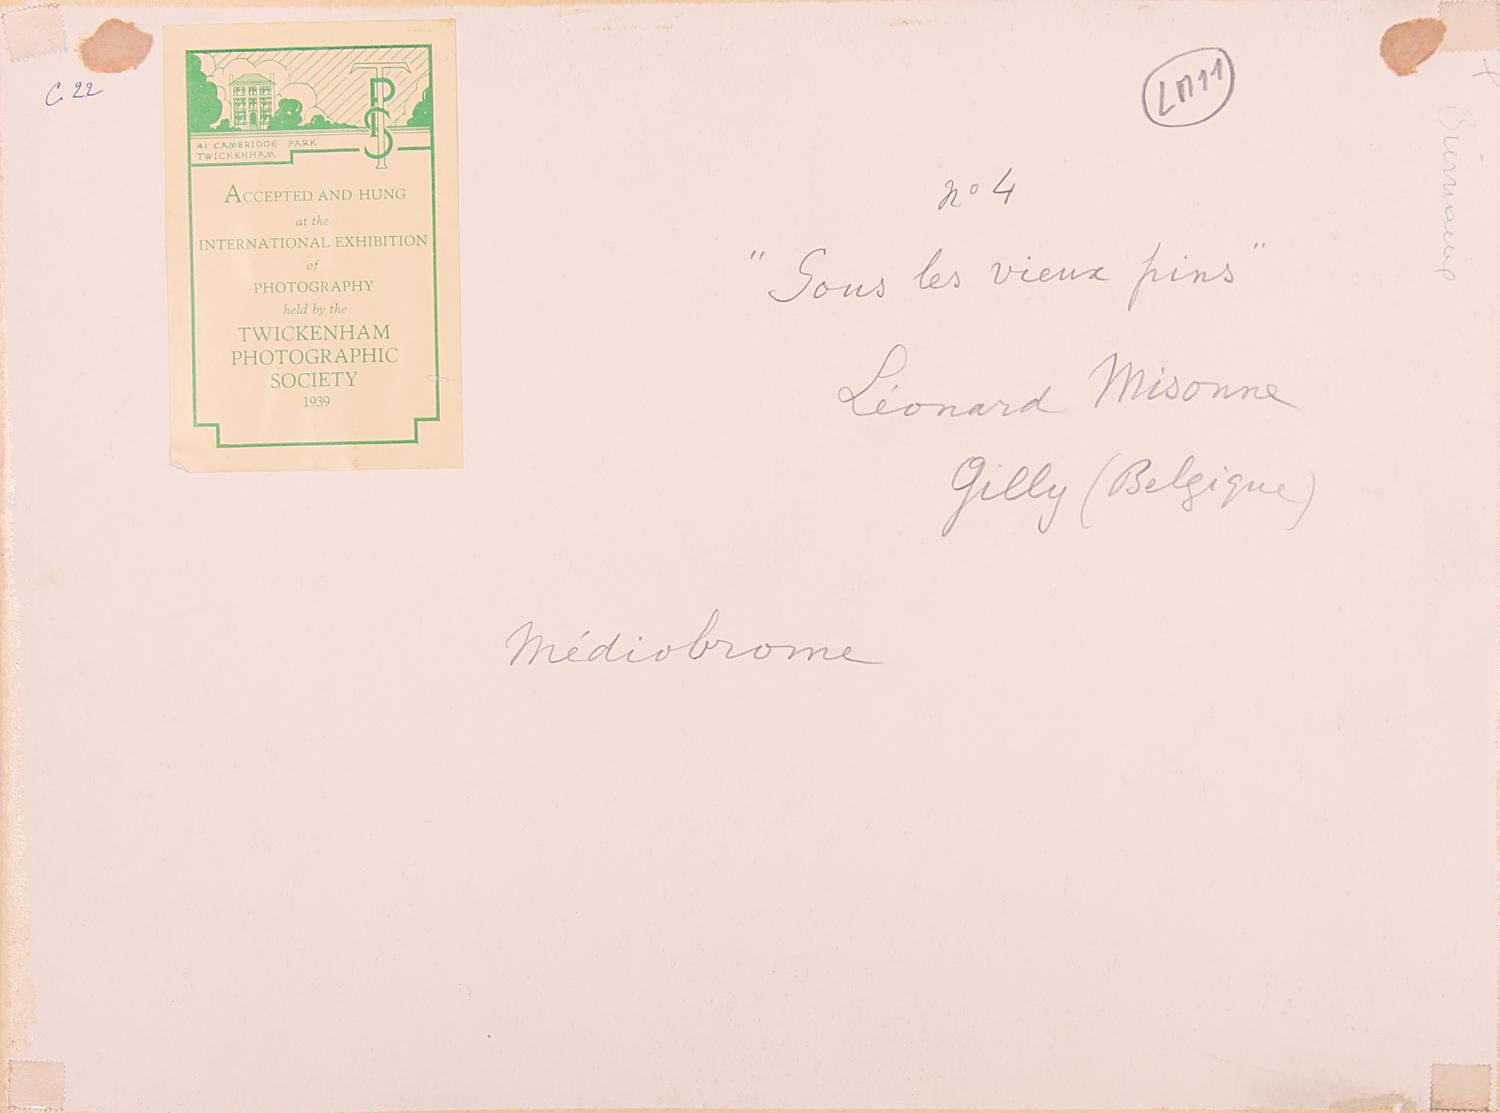 C. 22
TPS
41 CAMBRIDGE PARK
TWICKENHAM
ACCEPTED AND HUNG
at the
INTERNATIONAL EXHIBITION
of
PHOTOGRAPHY
held by the
TWICKENHAM
PHOTOGRAPHIC
SOCIETY
1939
LM11
no 4
"Sous les vieux pins"
Léonard Misonne
Gilly (Belgique)
Médiobrome